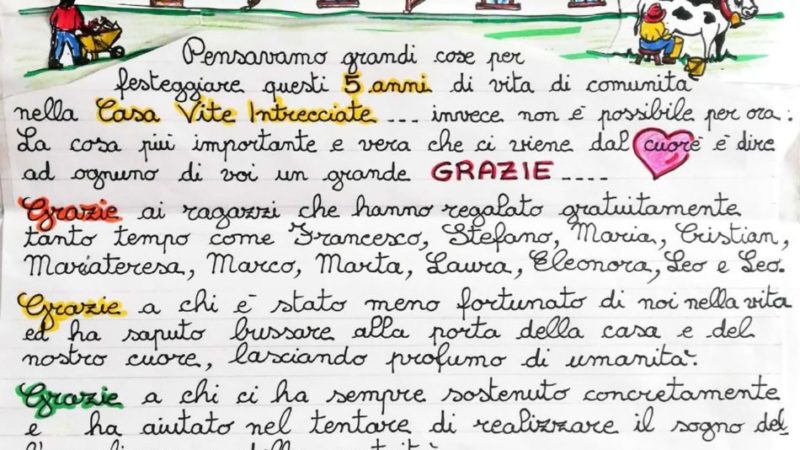 Pensavamo grandi cose per
festeggiare questi 5 anni di vita di comunità
nella Casa Vite Intrecciate .... invece non è possibile per ora.
La cosa più importante e vera che ci viene dal cuore è dire
ad ognuno di voi un grande GRAZIE ....
Grazie ai ragazzi che hanno regalato gratuitamente
tanto tempo come Francesco, Stefano, Maria, Cristian,
Mariateresa, Marco, Marta, Laura, Eleonora, Leo e Leo.
Grazie a chi è stato meno fortunato di noi nella vita
ed ha saputo bussare alla porta della casa e del
nostro cuore, lasciando profumo di umanità.
Grazie a chi ci ha sempre sostenuto concretamente
e ha aiutato nel tentare di realizzare il sogno del